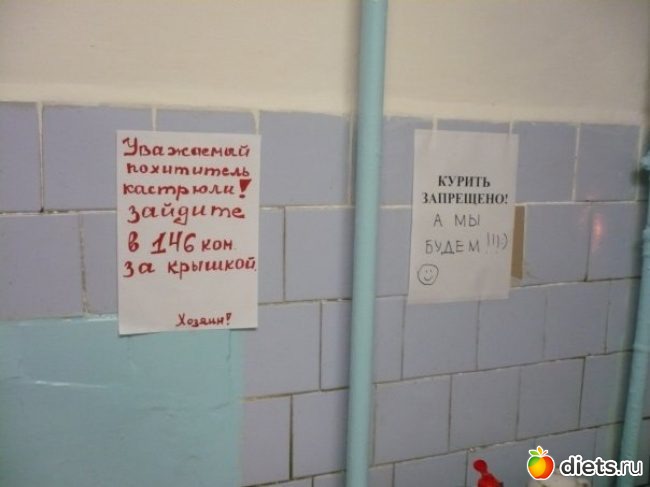 Уважаемый
похититель
кастрюли!
зайдите
в 146 кон.
за крышкой.
Хозяин!
КУРИТЬ
ЗАПРЕЩЕНО!
А МЫ
БУДЕМ!!!:)
diets.ru